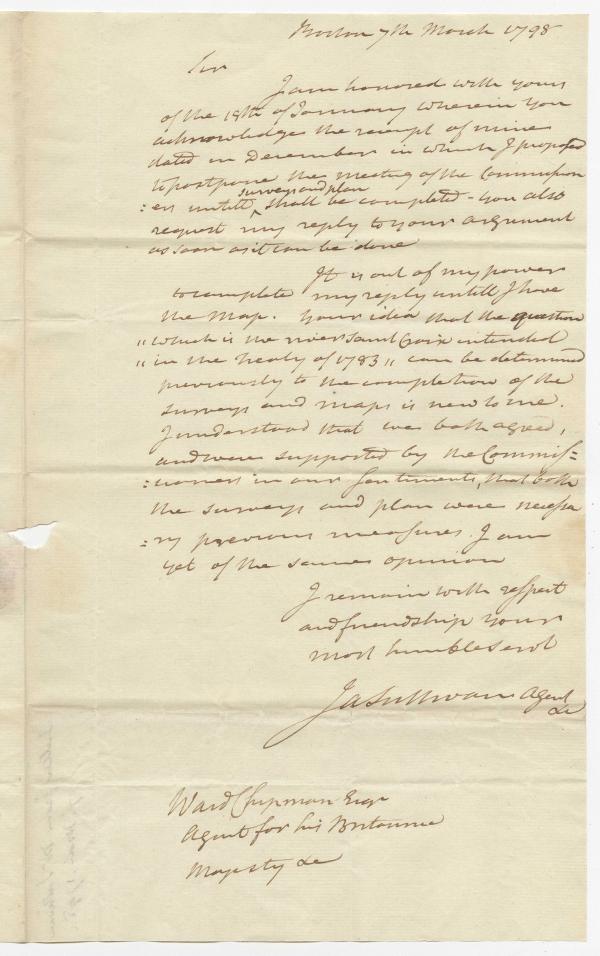 Boston 7th March 1798
Sir
I am honored with yours
of the 18th of January wherein you
acknowledge the receipt of mine
dated in December in which I proposed
to postpone the meeting of the Commission
surveys and plan
:ers untill ^ shall be completed - you also
request my reply to your argument
as soon as it can be done
It is out of my power
to complete my reply untill I have
the Map. Your idea that the question
"which is the river Saint Croix intended
"in the treaty of 1783" can be determined
previously to the completion of the
surveys and maps is new to me.
I understood that we both agreed,
and were supported by the Commis=
:sioners in our sentiments, that both
the surveys and plan were necessa
=ry previous measures. I am
yet of the same opinion
I remain with respect
and friendship your
most humble Servt
Ja Sullivan Agent
&c
Ward Chipman Esqr
Agent for his Britannic
Majesty &c